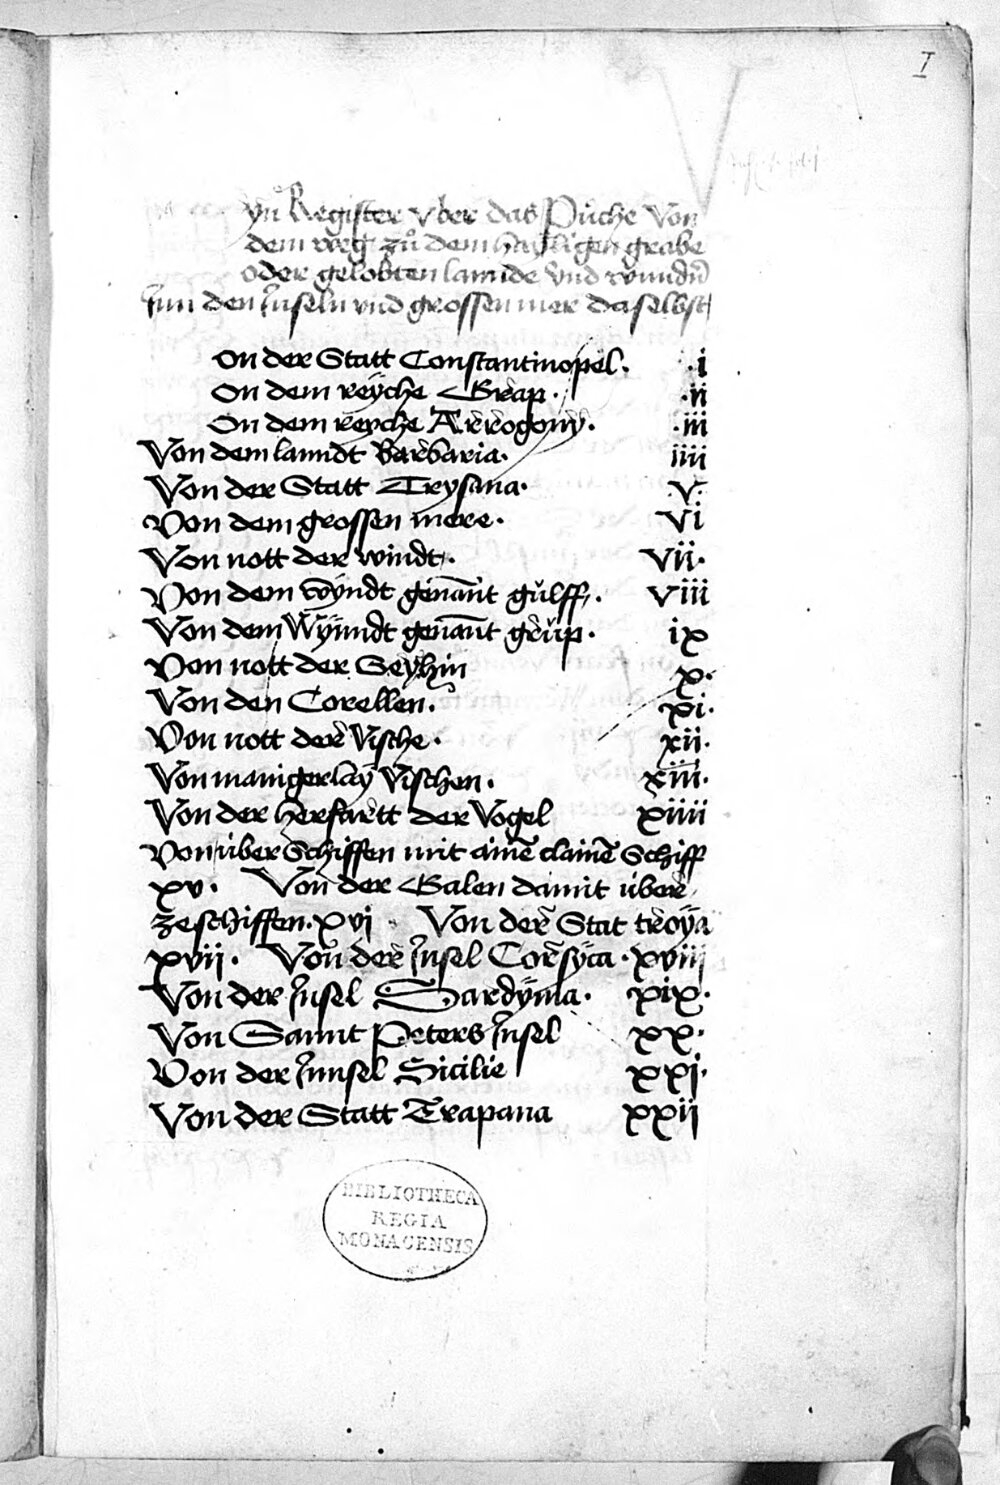 I
yn Register vber das Půche Von
dem weg zů dem hayligen grabe
oder gelobten lannde vnd wundn̄
Inn den Inseln vnd grossen mer daselbst
on der Statt Constantinopel. .i
on dem reÿche Grap. .ii
on dem reyche Arrogony. .iii
Von dem lanndt Barbaria. iiii
Von der Statt Trysana. v
Von dem grossen mere. vi
Von nott der windt. vii.
Von dem wyndt genāt gulff. viii
Von dem Wÿnndt genāt grup. ix
Von nott der Seyhin x.
Von den Corellen. xi.
Von nott der Vische. xii.
Von manigerlaÿ Vischen. xiii.
Von der herfartt der Vogel xiiii
Von über Schiffen mit ainē clainē Schiff
xv. Von der Galen damit über
zeschiffen. xvj Von der Stat troÿa
xvii. Von der Insel Corsÿca. xviij
Von der Insel Sardÿnia. xix.
Von Sannt Peters Insel xx.
Von der Innsel Sicilie xxj.
Von der Statt Trapana xxij
BIBLIOTHECA
REGIA
MONACENSIS